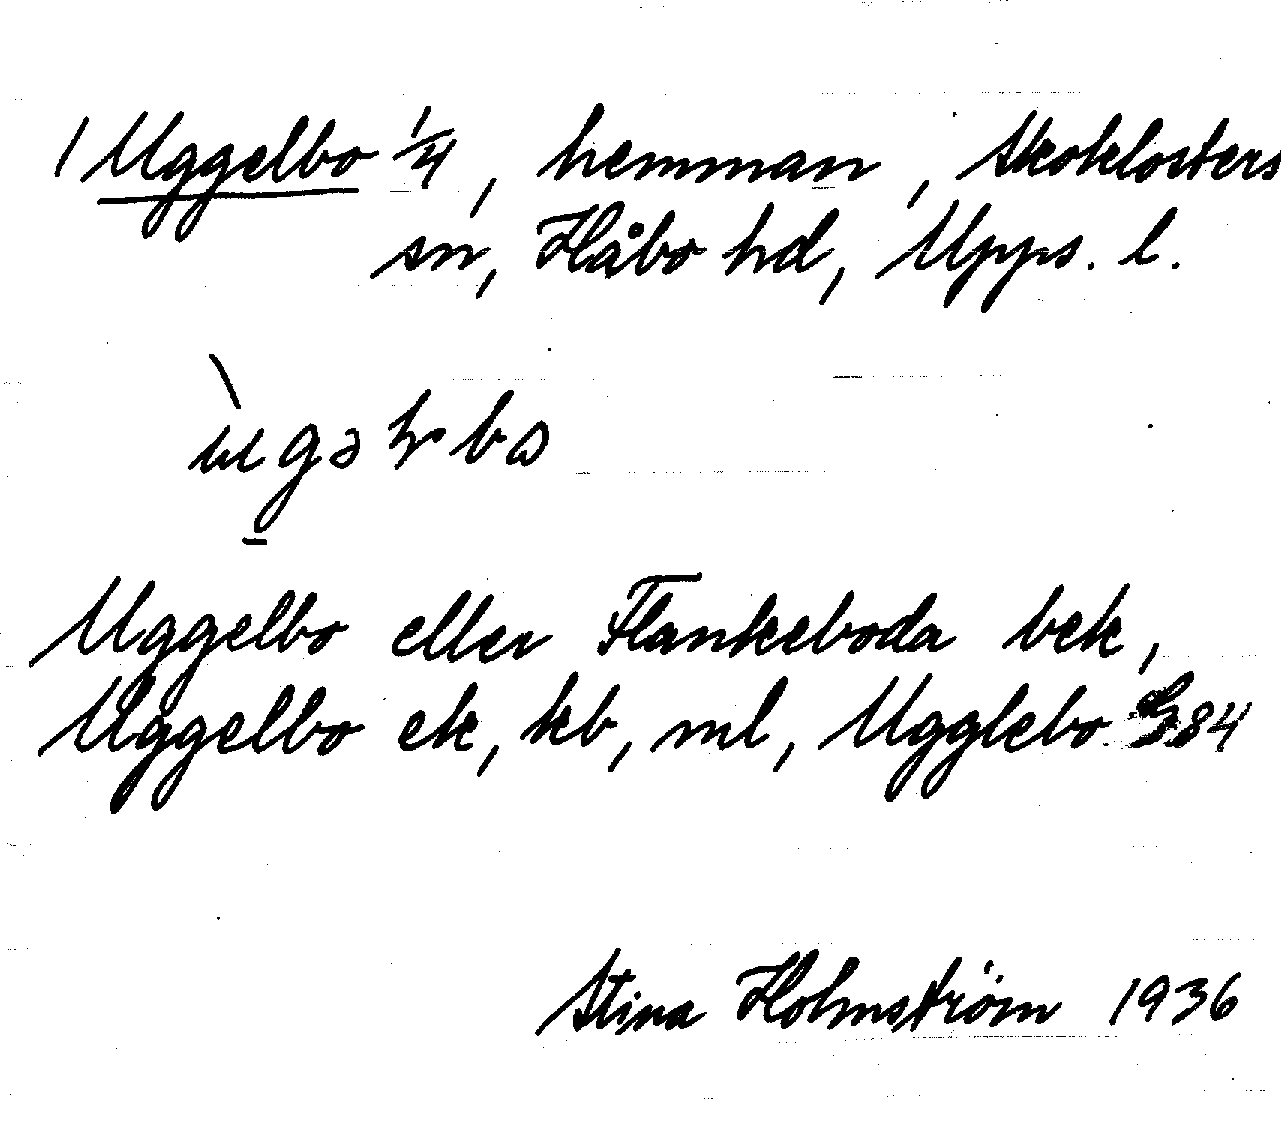 1 Uggelbo 1/4, hemman, Skoklosters
sn, Håbo hd, Upps. l.
Uggelbo eller Flankeboda bek,
Uggelbo ek, kb, ml, Ugglebo G84
Stina Holmström 1936